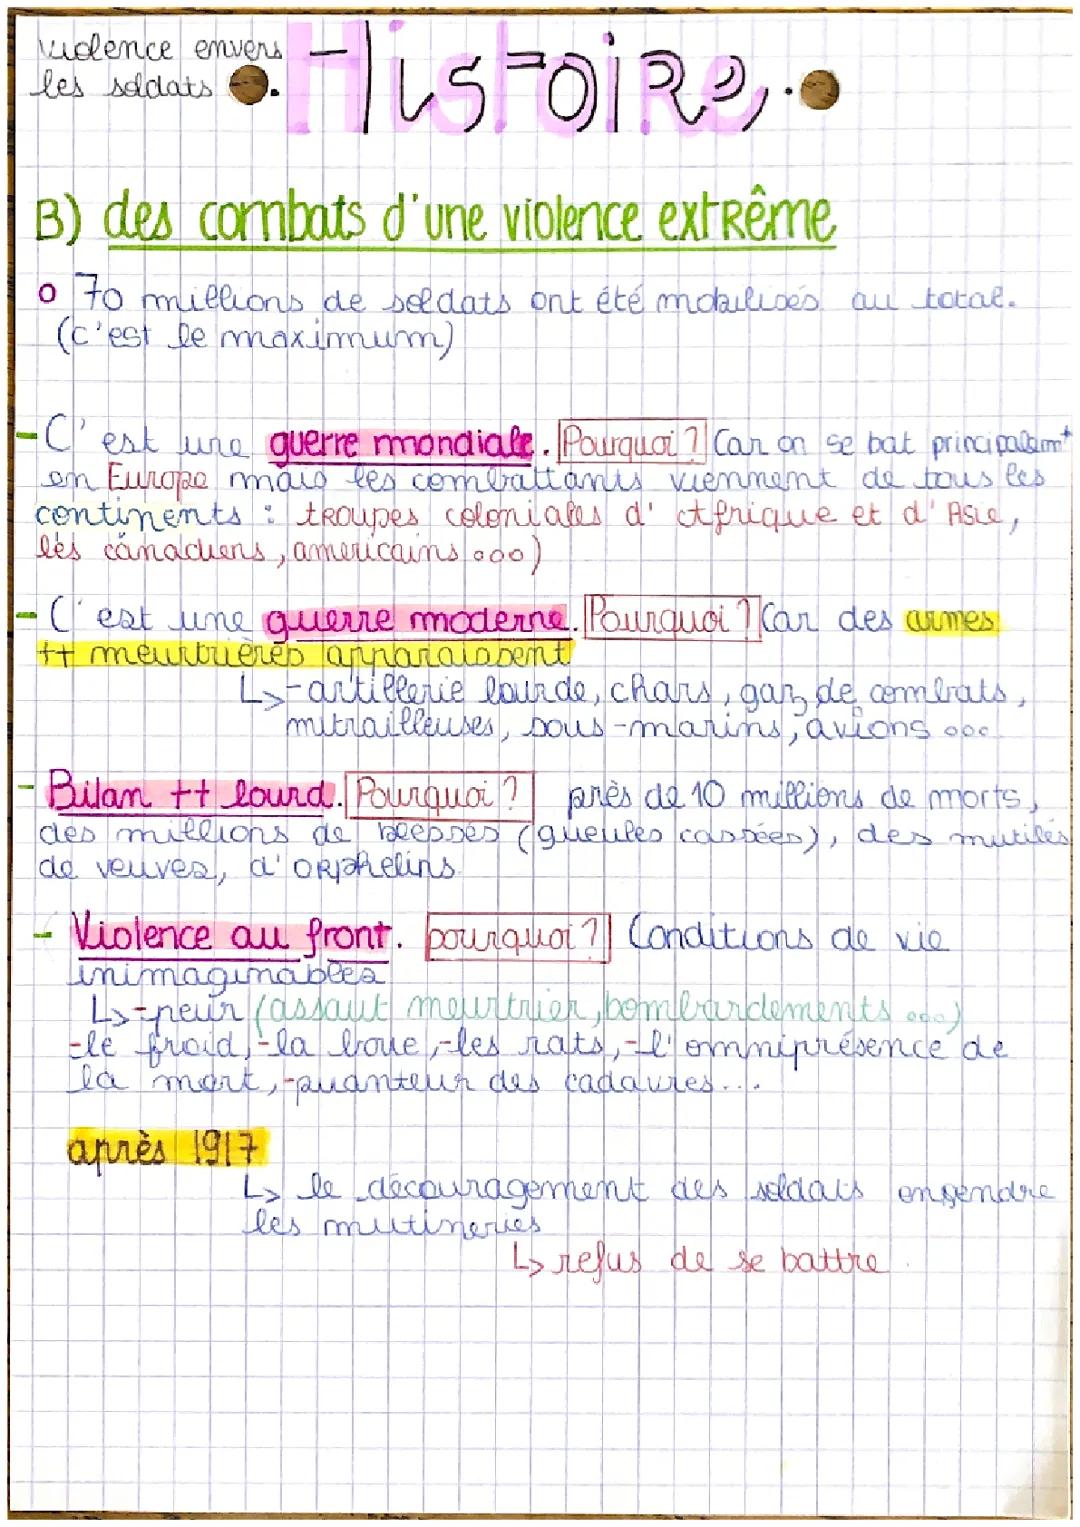 violence envers
les soldats
Histoire
B) des combats d'une violence extrême
o 70 millions de soldats ont été mobilisés au total.
(c'est le maximum)
- C'est une guerre mondiale. Pourquoi ? Car on se bat principalemt
en Europe mais les combattants viennent de tous les
continents : troupes coloniales d'Afrique et d'Asie,
les canadiens, américains ...)
- C'est une guerre moderne. Pourquoi ? Car des armes
++ meurtrières apparaissent
↳ - artillerie lourde, chars, gaz de combats,
mitrailleuses, sous-marins, avions ...
- Bilan ++ lourd. Pourquoi ? près de 10 millions de morts,
des millions de blessés (gueules cassées), des mutilés
de veuves, d'orphelins.
- Violence au front. pourquoi ? Conditions de vie
inimaginables
↳ - peur (assaut meurtrier, bombardements ...)
- le froid, - la boue, - les rats, - l'omniprésence de
la mort, - puanteur des cadavres...
après 1917
↳ le découragement des soldats engendre
les mutineries
↳ refus de se battre